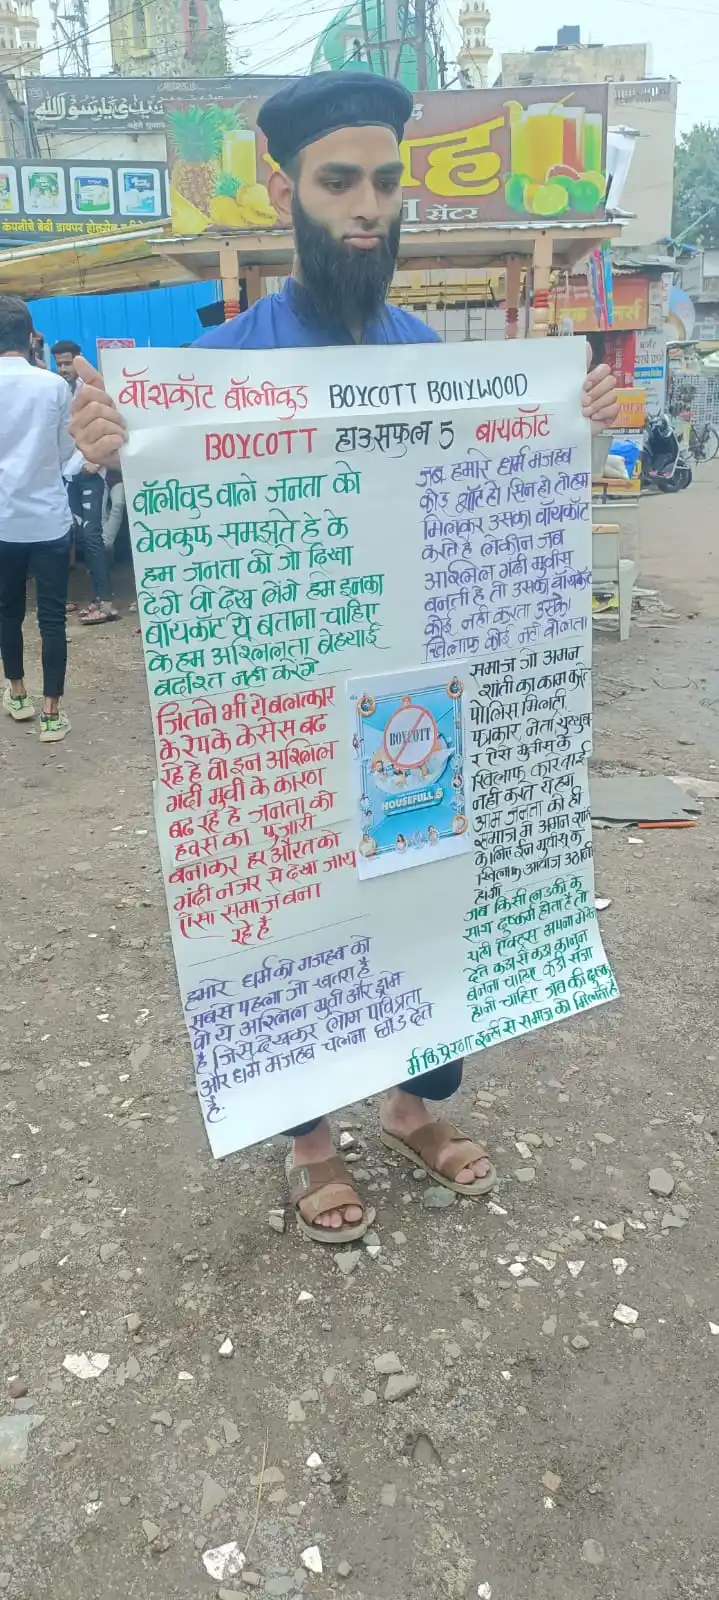 يارسول الله
कंपनीचे बेबी डायपर होलसेल
सेंटर
बॉयकॉट बॉलीवुड BOYCOTT BOLLYWOOD
BOYCOTT हाउसफुल 5 बायकॉट
बॉलीवुड वाले जनता को
बेवकुफ समझते हे के
हम जनता को जो दिखा
देंगे वो देख लेंगे हम इनका
बायकॉट ये बताना चाहिए
के हम अश्लिलता बेहयाई
बर्दाश्त नही करेंगे
जितने भी ये बलत्कार
के रेप के केसेस बढ
रहे हे वो इन अश्लिल
गंदी मुवी के कारण
बढ रहे हे जनता को
हवस का पूजारी
बनाकर हर औरत को
गंदी नजर से देखा जाय
ऐसा समाज बना
रहे है
हमारे धर्म को मजहब को
सबसे पहला जो खतरा है
वो ये अश्लिल मुवी और ड्रामे
है जिसे देखकर लोग पवित्रता
और धर्म मजहब चलना छोड देते
है.
जब हमारे धर्म मजहब
कोई शॉट हो सिन हो तो हम
मिलकर उसका बॉयकॉट
करते हे लेकीन जब
अश्लिल गंदी मुवीस
बनती हे तो उसका बॉयकॉट
कोई नही करता उसके
खिलाफ कोई नही बोलता
समाज जो अमन
शांती का काम करे
पोलिस मिलती
पत्रकार, नेता युट्युब
र ऐसे मुवीस के
खिलाफ कारवाई
नही करते ये हम
आम जनता को ही
समाज मे अमन शांती
के लिए ईन मुवीस के
खिलाफ आवाज उठानी
होगी
जब किसी लडकी के
साथ दुष्कर्म होता है तो
यही ऍक्टर्स अपना मेसेज
देते कडा से कडा कानुन
बनना चाहिए कडी सजा
होनी चाहिए जब की दुष्क
र्म कि प्रेरणा इन्ही से समाज को मिलती है
BOYCOTT
HOUSEFULL 5